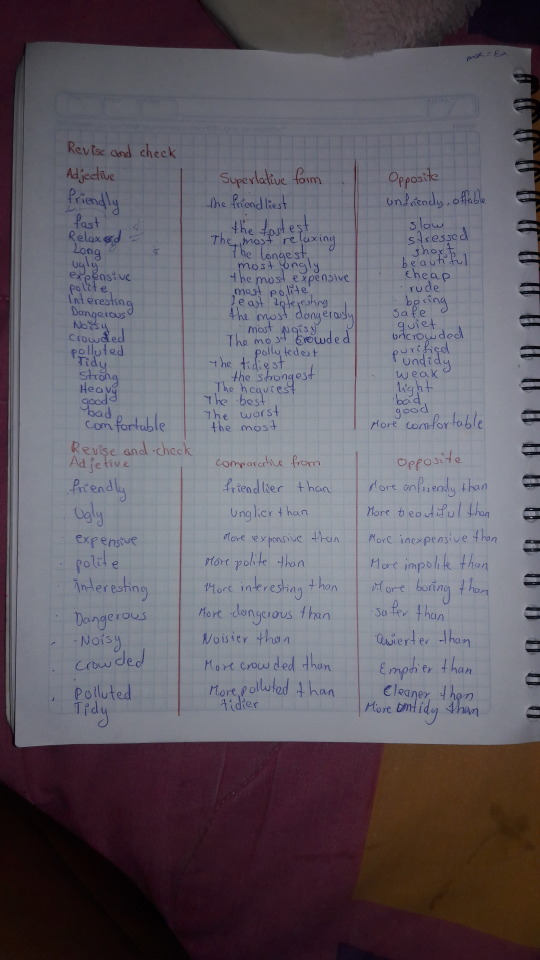 Revise and check
Adjective Superlative form Opposite
friendly the friendliest unfriendly, affable
fast the fastest slow
Relaxed The most relaxing stressed
Long The longest short
ugly most ungly beautiful
expensive the most expensive cheap
polite most polite rude
Interesting least interesting boring
Dangerous the most dangerously safe
Noisy most noisy quiet
crowded The most crowded uncrowded
polluted pollutedest purified
Tidy The tidiest undidy
Strong the strongest weak
Heavy The heaviest light
good The best bad
bad The worst good
comfortable the most More comfortable
Revise and check
Adjetive comparative from Opposite
friendly friendlier than More unfriendy than
Ugly Unglier than More beautiful than
expensive More expensive than More inexpensive than
polite More polite than More impolite than
Interesting More interesting than More boring than
Dangerous More dangerous than safer than
Noisy Noisier than Quierter than
crowded More crowded than Emptier than
polluted More polluted than Cleaner than
Tidy tidier More untidy than